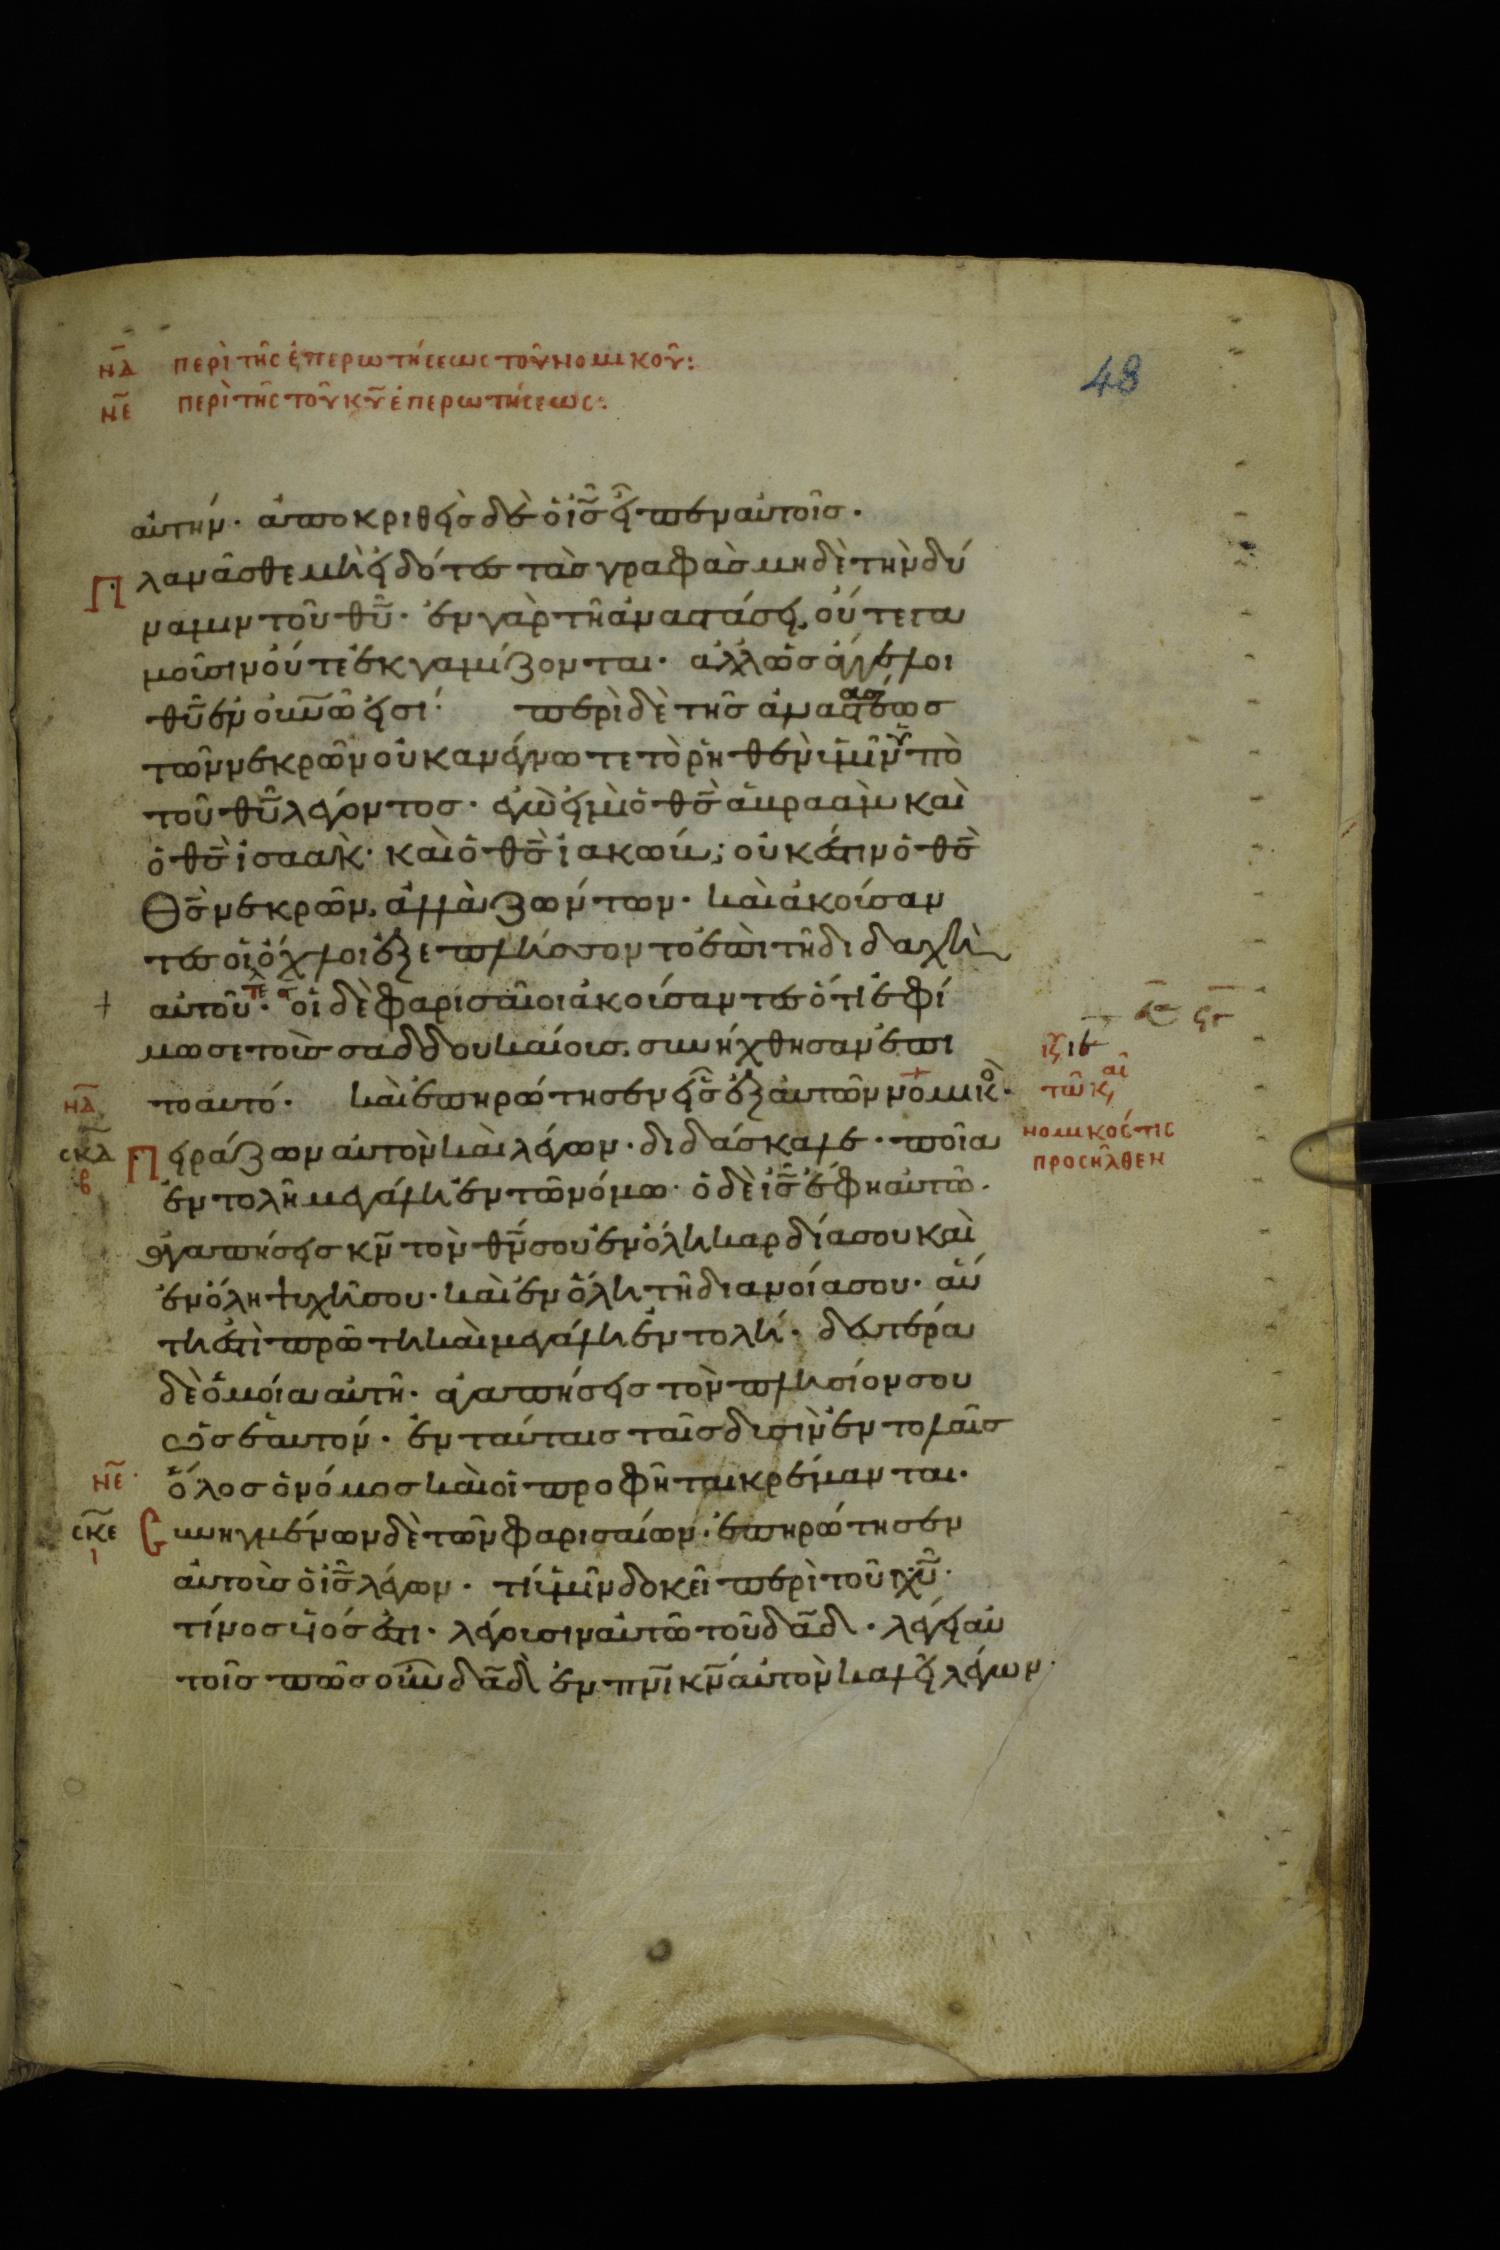 ν̅δ̅ περὶ τῆς ἐπερωτήσεως τοῦ νομικοῦ:
ν̅ε̅ περὶ τῆς τοῦ κ̅υ̅ ἐπερωτήσεως:
48
αὐτήν· ἀποκριθεὶς δὲ ὁ ι̅ς̅ εἶπεν αὐτοῖς·
Πλανᾶσθε μὴ εἰδότες τὰς γραφὰς μηδὲ τὴν δύ
ναμιν τοῦ θ̅υ̅· ἐν γὰρ τῇ ἀναστάσει, οὔτε γα
μοῦσιν οὔτε ἐκγαμίζονται· ἀλλ' ὡς ἄγγελοι
θ̅υ̅ ἐν ο̅υ̅ν̅ω̅ εἰσί· περὶ δὲ τῆς ἀναστάσεως
τῶν νεκρῶν οὐκ ἀνέγνωτε τὸ ῥηθὲν ὑμῖν ὑπὸ
τοῦ θ̅υ̅ λέγοντος· ἐγώ εἰμι ὁ θ̅ς̅ ἀβραὰμ καὶ
ὁ θ̅ς̅ ἰσαάκ· καὶ ὁ θ̅ς̅ ἰακώβ; οὐκ ἔστιν ὁ θ̅ς̅
Θ̅ς̅ νεκρῶν, ἀλλὰ ζώντων· καὶ ἀκούσαν
τες οἱ ὄχλοι ἐξεπλήσσοντο ἐπὶ τῇ διδαχῇ
αὐτοῦ· οἱ δὲ φαρισαῖοι ἀκούσαντες ὅτι ἐφί
μωσε τοὺς σαδδουκαίους, συνήχθησαν ἐπὶ
ν̅δ̅ τὸ αυτό· καὶ ἐπηρώτησεν εἷς ἐξ αὐτῶν νομικὸς·
νομικός τις
προσῆλθεν
σ̅κ̅δ̅ Πειράζων αὐτὸν καὶ λέγων· διδάσκαλε· ποῖα
β ἐντολὴ μεγάλη ἐν τῷ νόμω· ὁ δὲ ι̅ς̅ ἔφη αὐτῶ·
ἀγαπήσεις κ̅ν̅ τὸν θ̅ν̅ σου ἐν ὅλη καρδία σου καὶ
ἐν ὅλη ψυχῆ σου· καὶ ἐν ὅλη τῆ διανοία σου· αὕ
τη ἐστὶ πρώτη καὶ μεγάλη ἐντολή· δευτέρα
δὲ ὁμοία αὐτῆ· ἀγαπήσεις τὸν πλησίον σου
ὡς ἑαυτόν· ἐν ταύταις ταῖς δυσὶν ἐντολαῖς
ν̅ε̅ ὅλος ὁ νόμος καὶ οἱ προφῆται κρέμανται·
σ̅κ̅ε̅ Συνηγμένων δὲ τῶν φαρισαίων· ἐπηρώτησεν
ι αὐτοὺς ὁ ι̅ς̅ λέγων· τί ὑμῖν δοκεῖ περὶ τοῦ χ̅υ̅·
τίνος υἱός ἐστι· λέγουσιν αὐτῶ τοῦ δ̅α̅δ̅· λέγει αὐ
τοῖς πῶς οὖν δ̅α̅δ̅ ἐν π̅ν̅ι̅ κ̅ν̅ αὐτὸν καλεῖ λέγων·